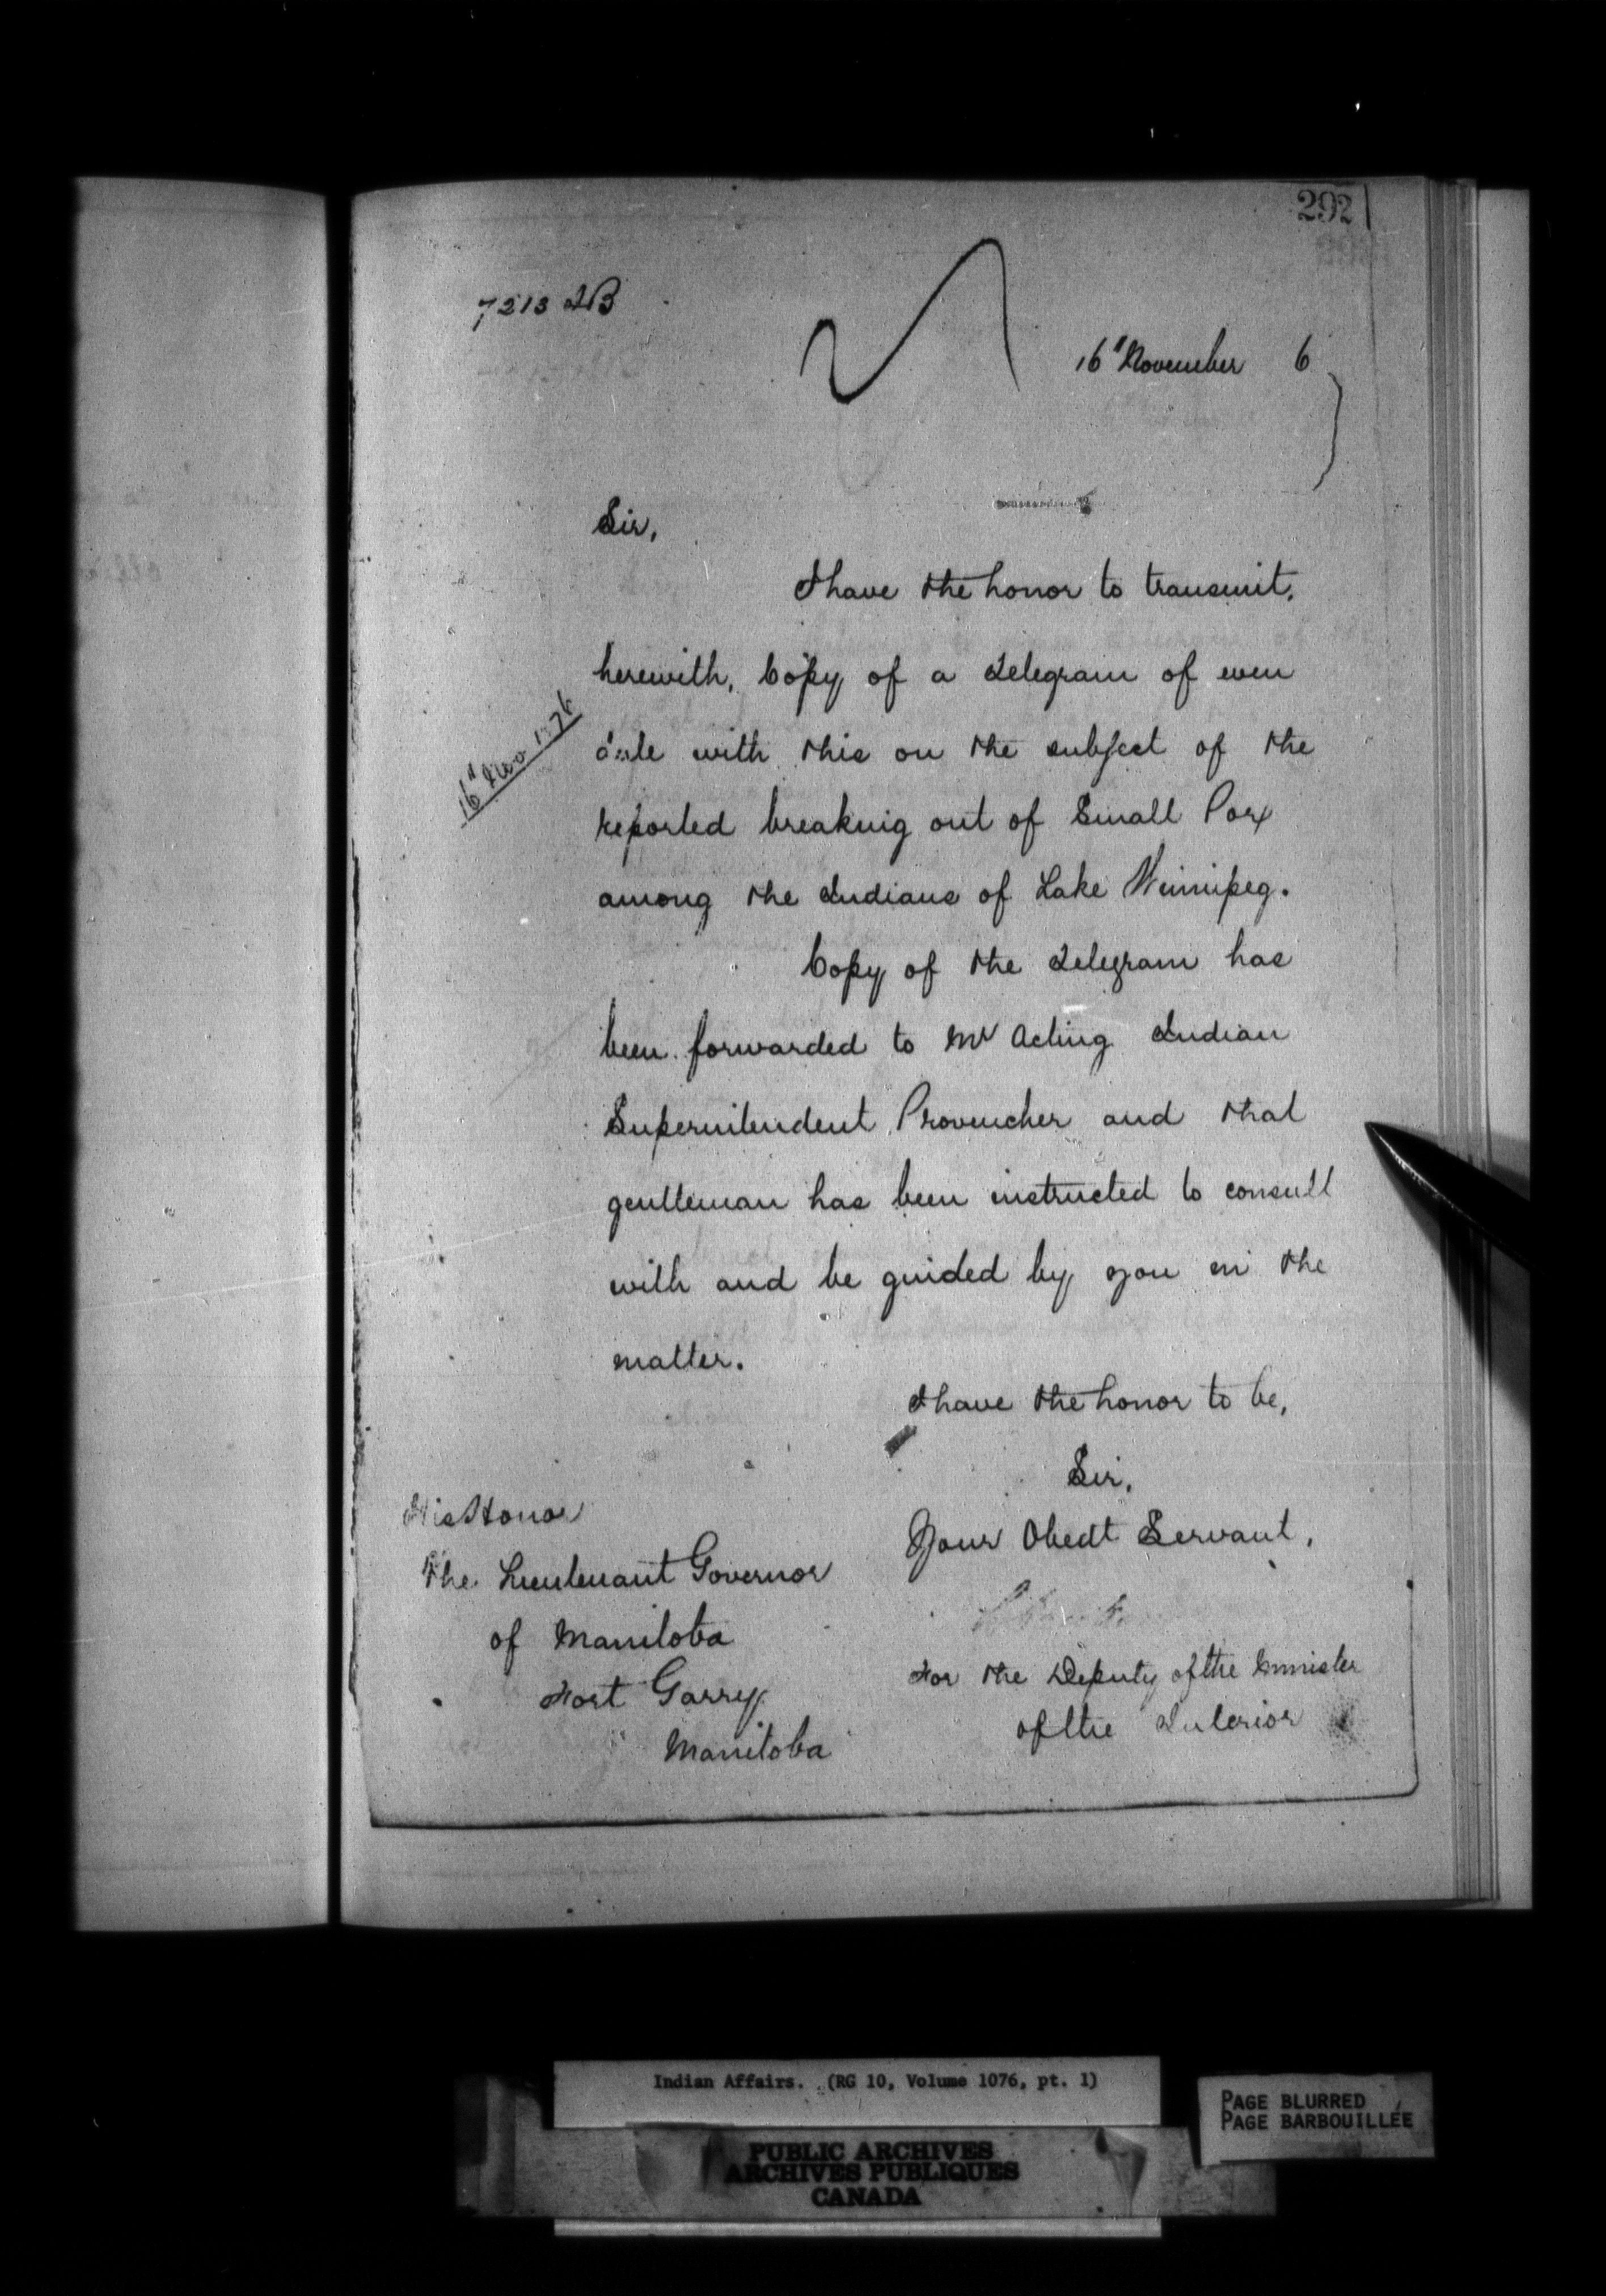 292
7213 LB
16" November 6
Sir,
I have the honor to transmit,
herewith, Copy of a telegram of even
date with this on the subject of the
16" Nov 1876
reported breaking out of Small Pox
among the Indians of Lake Winnipeg.
Copy of the telegram has
been forwarded to Mr Acting Indian
Superintendent Provencher and that
gentleman has been instructed to consult
with and be guided by you in the
matter.
I have the honor to be,
Sir,
Your Obedt Servant,
For the Deputy of the Minister
of the Interior
His Honor
The Lieutenant Governor
of Manitoba
Fort Garry
Manitoba
Indian Affairs. (RG 10, Volume 1076, pt. 1)
PAGE BLURRED
PAGE BARBOUILLÉE
PUBLIC ARCHIVES
ARCHIVES PUBLIQUES
CANADA